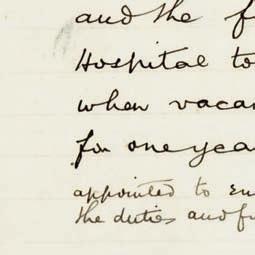 and the f
Hospital to
when vacan
for one yea
appointed to en
the duties and fu